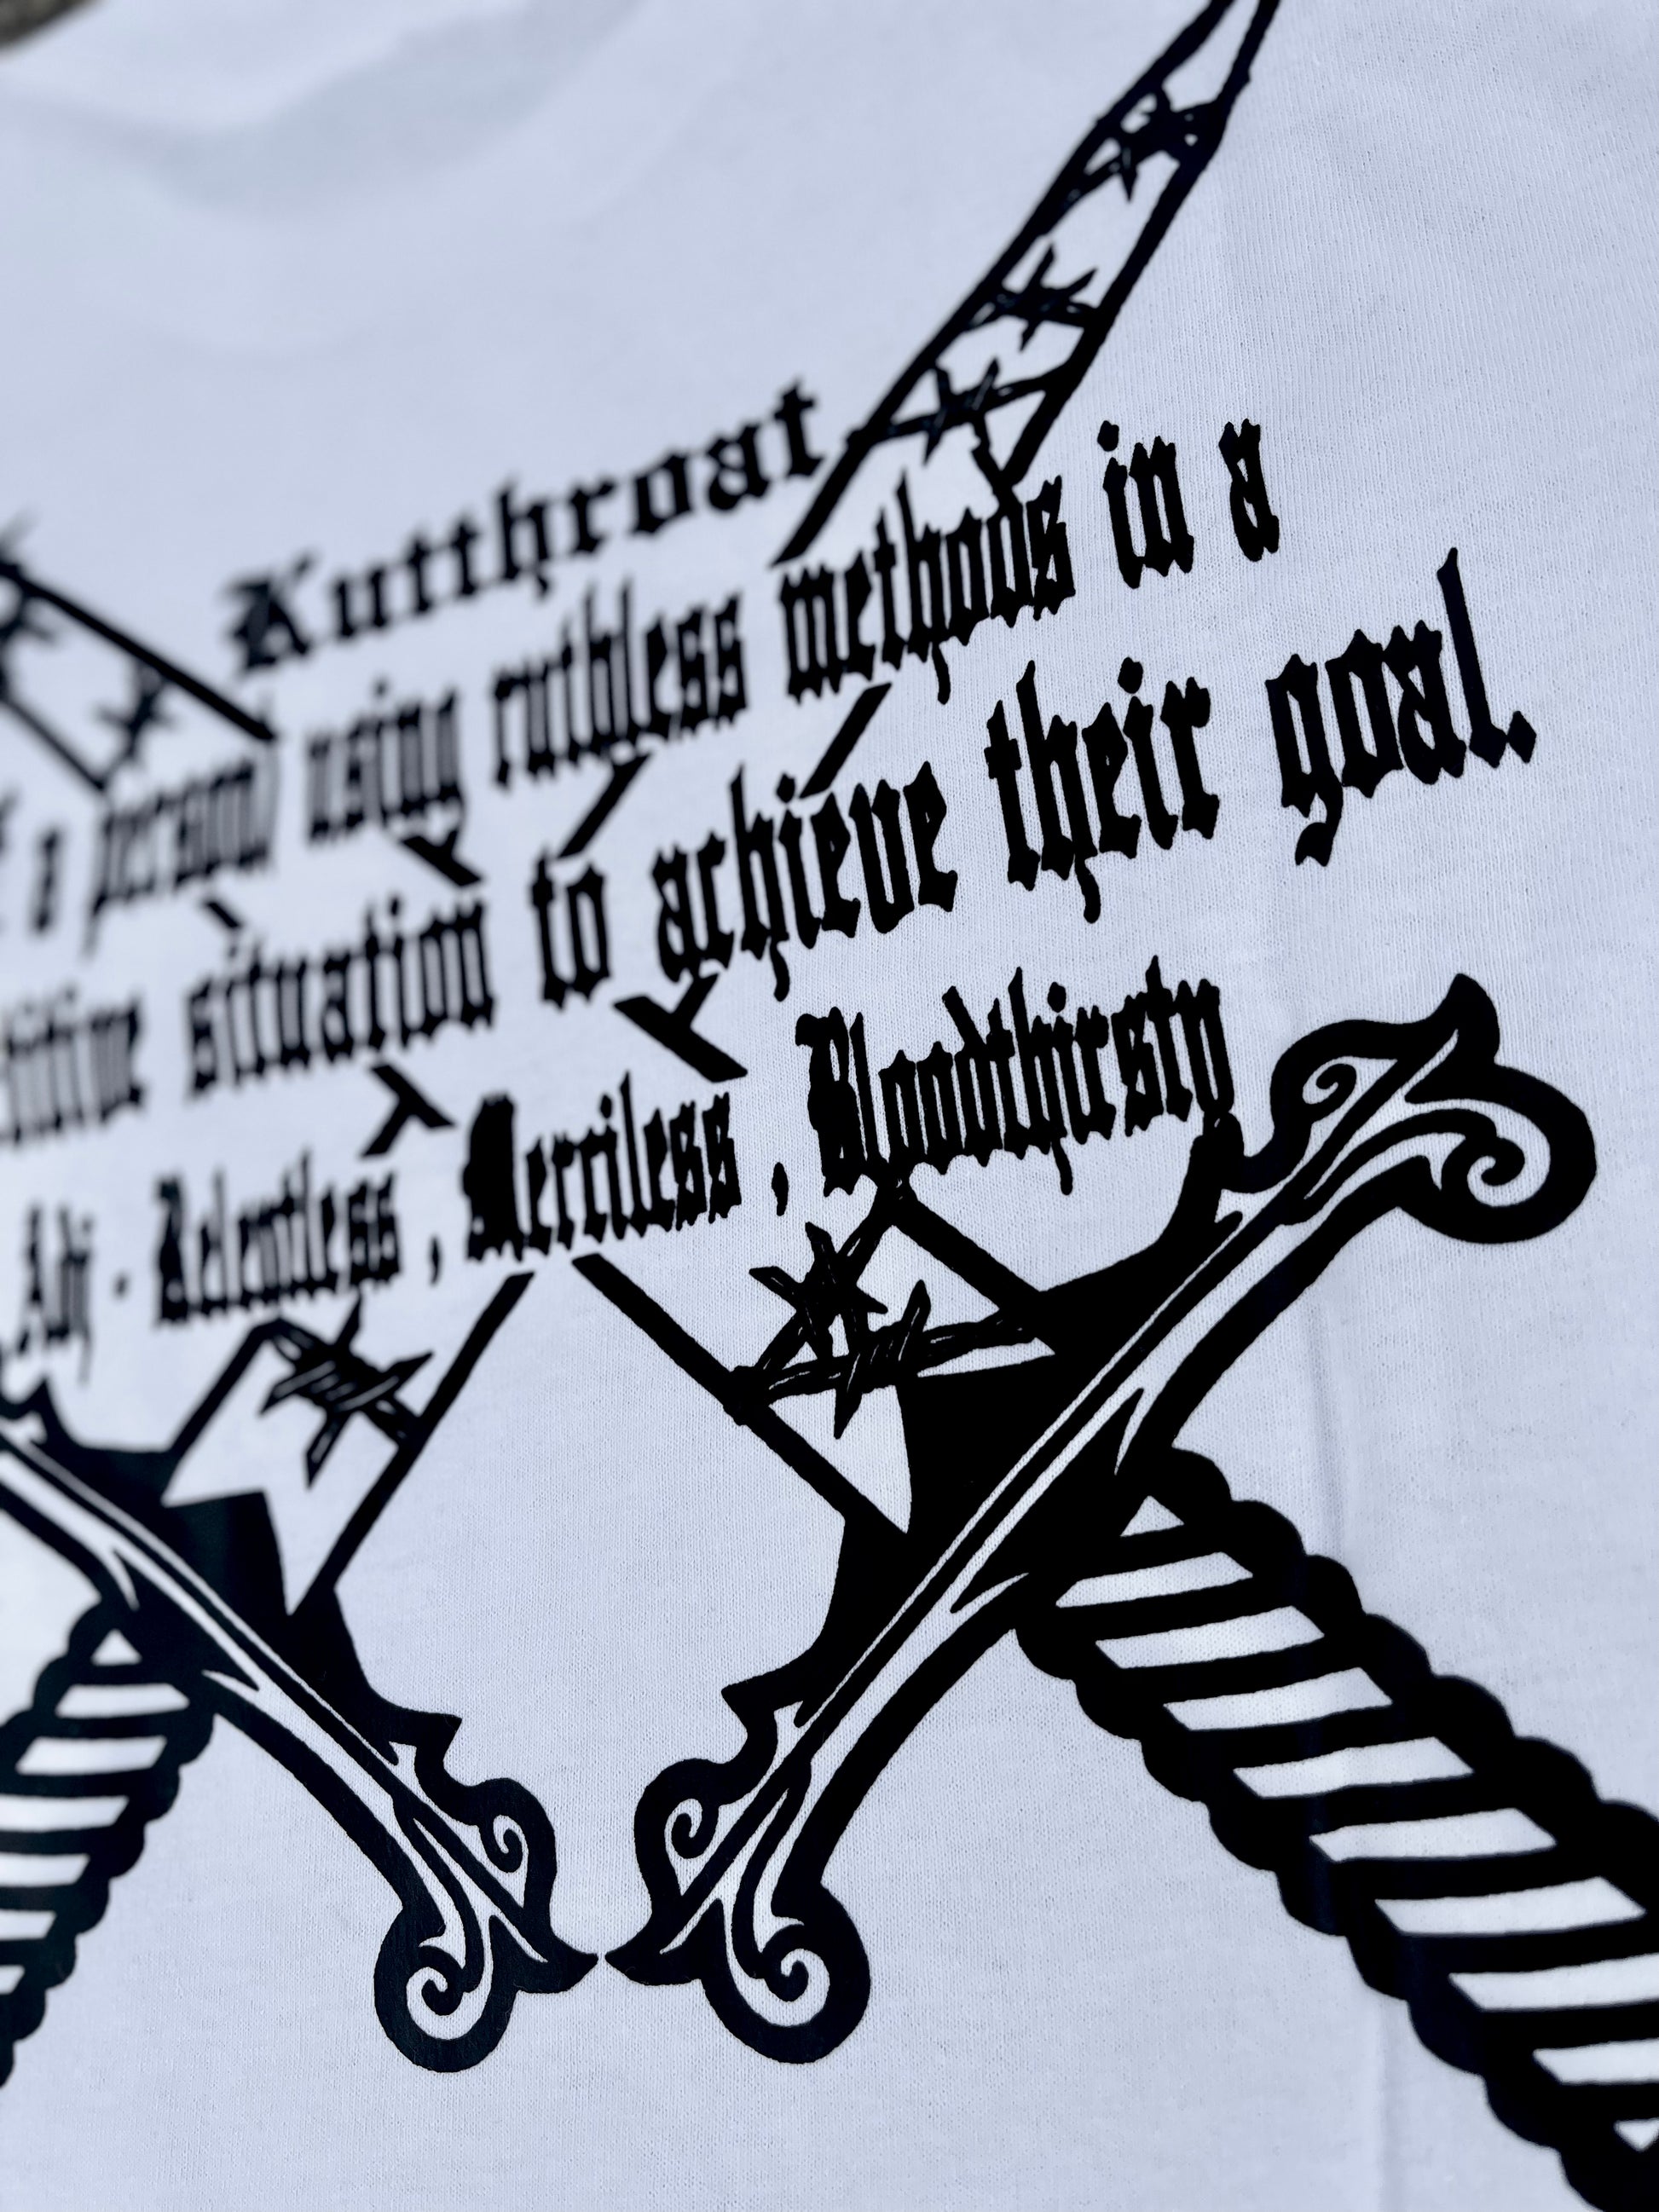 Kutthroat
a person using ruthless methods in a
situation to achieve their goal.
Adj - Relentless , Merciless , Bloodthirsty